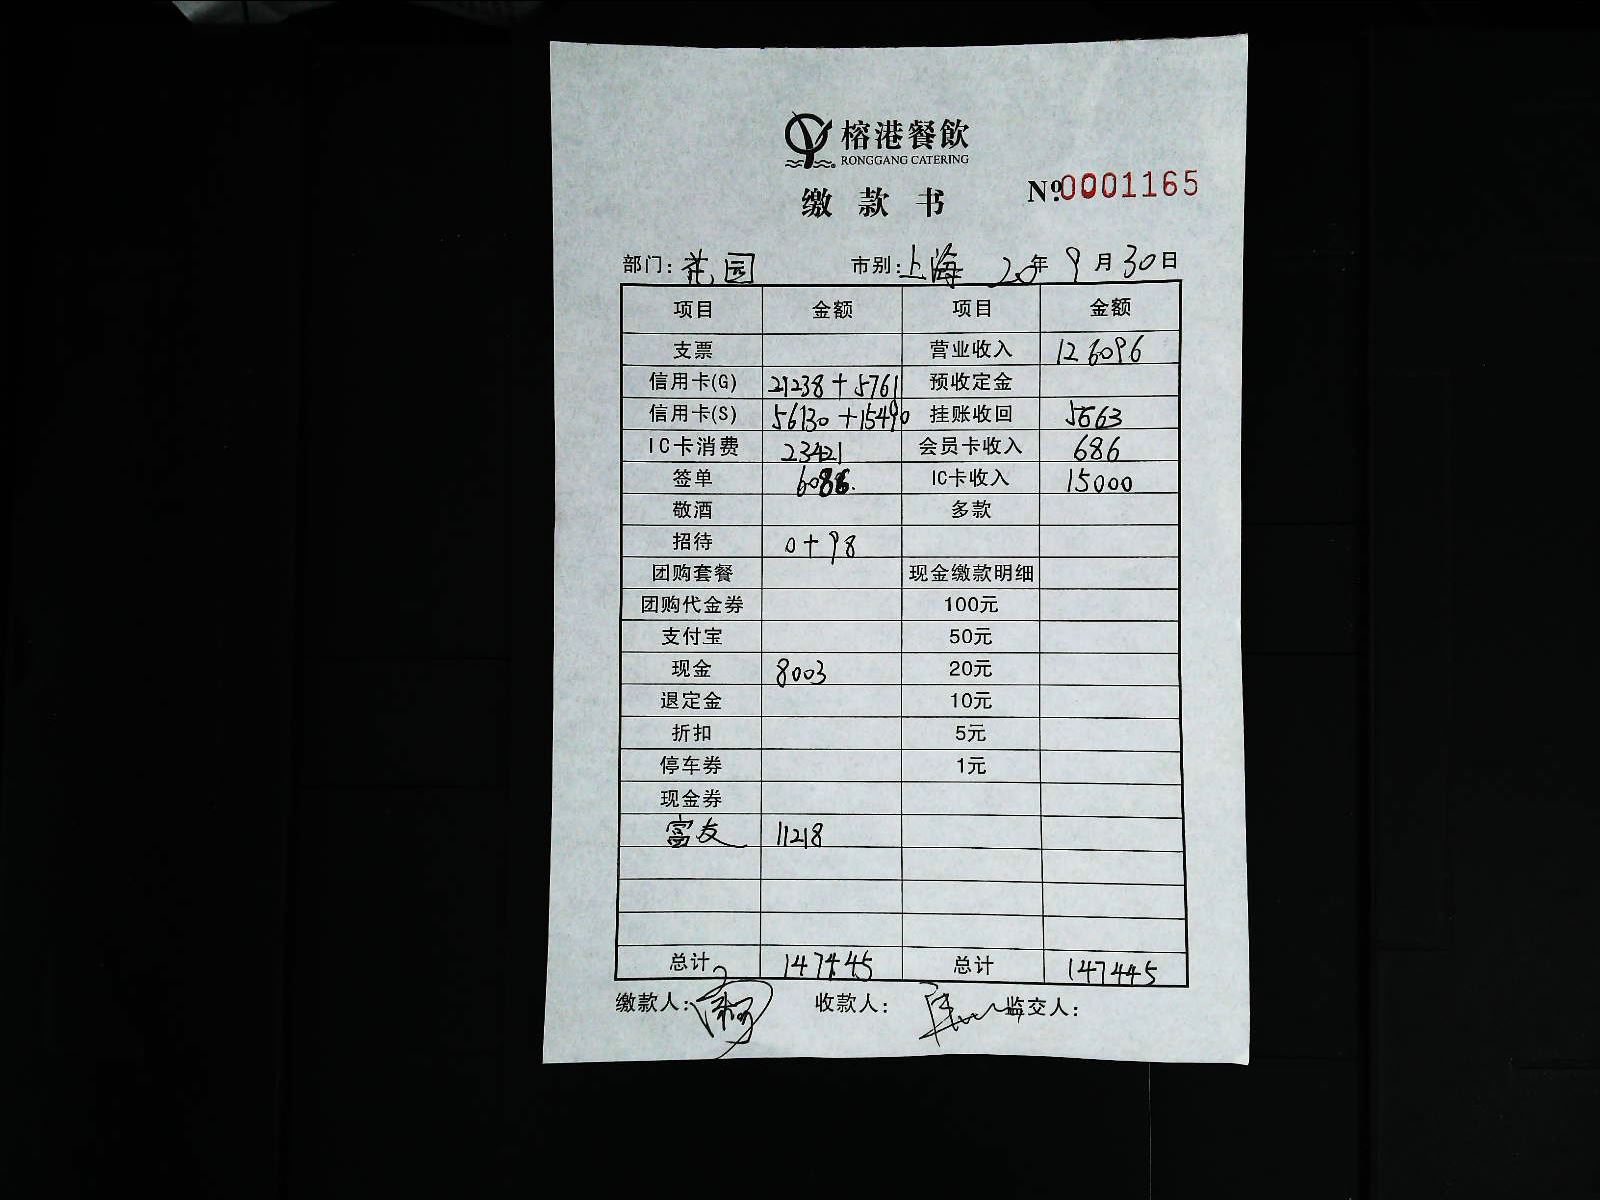 榕港餐飲
RONGGANG CATERING
缴款书 №0001165
部门：花园 市别：上海 20年9月30日
项目 金额 项目 金额
支票 营业收入 126096
信用卡(G) 21238+5761 预收定金
信用卡(S) 56130+15490 挂账收回 5663
IC卡消费 23421 会员卡收入 686
签单 6086. IC卡收入 15000
敬酒 多款
招待 0+98
团购套餐 现金缴款明细
团购代金券 100元
支付宝 50元
现金 8003 20元
退定金 10元
折扣 5元
停车券 1元
现金券
富友 11218
总计 147445 总计 147445
缴款人： 收款人： 监交人：